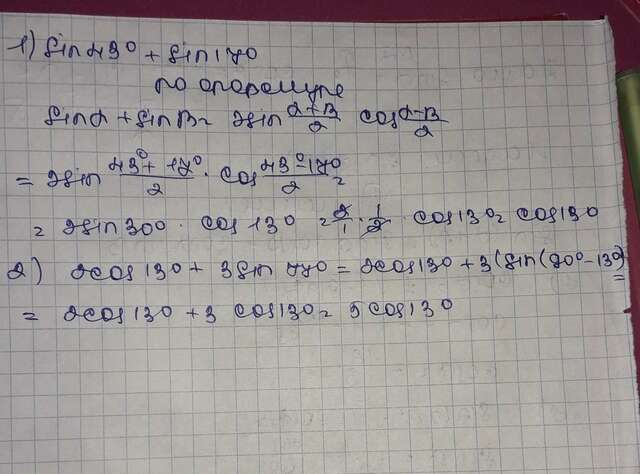 1) sin 43° + sin 17°
по формуле
sin α + sin β = 2 sin (α+β)/2 cos (α-β)/2
= 2 sin (43° + 17°)/2 · cos (43° - 17°)/2 =
= 2 sin 30° · cos 13° = 2/1 · 1/2 · cos 13° = cos 13°
2) 2 cos 13° + 3 sin 77° = 2 cos 13° + 3 (sin (90° - 13°) =
= 2 cos 13° + 3 cos 13° = 5 cos 13°